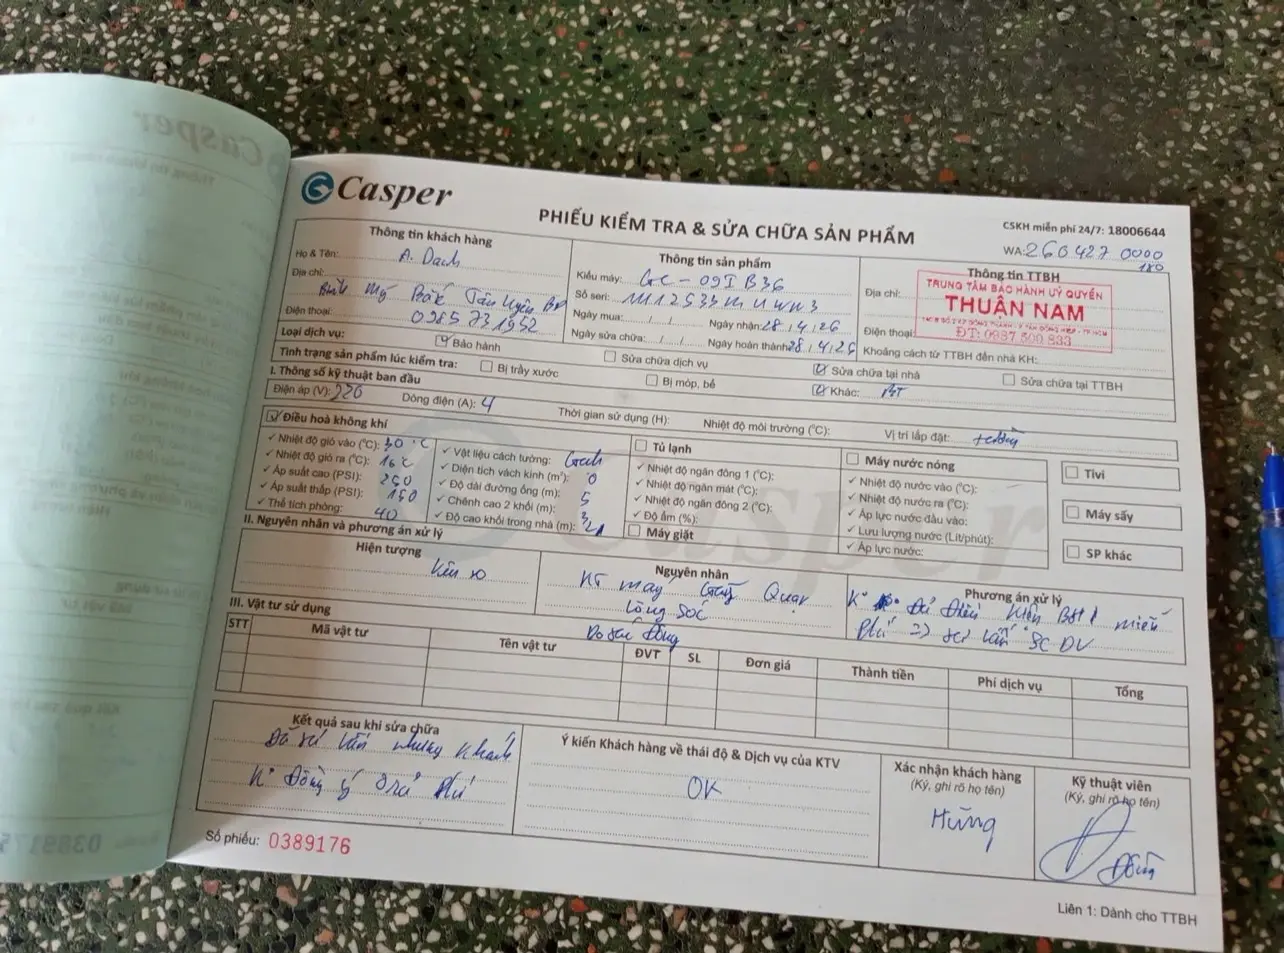 Casper
PHIẾU KIỂM TRA & SỬA CHỮA SẢN PHẨM
CSKH miễn phí 24/7: 18006644
WA: 260427 0000
180
Thông tin khách hàng
Họ & Tên: A. Danh
Địa chỉ:
Mỹ Bắc Tân Uyên BD
Điện thoại: 0985 731952
Thông tin sản phẩm
Kiểu máy: GC - 09IB36
Số seri:
Ngày mua: / / Ngày nhận: 28/4/26
Ngày sửa chữa: / / Ngày hoàn thành: 28/4/26
Thông tin TTBH
Địa chỉ:
TRUNG TÂM BẢO HÀNH UỶ QUYỀN
THUẬN NAM
ĐT: 0987 509 833
Điện thoại:
Khoảng cách từ TTBH đến nhà KH:
Loại dịch vụ: Bảo hành Sửa chữa dịch vụ Sửa chữa tại nhà Sửa chữa tại TTBH
Tình trạng sản phẩm lúc kiểm tra: Bị trầy xước Bị móp, bể Khác: BT
I. Thông số kỹ thuật ban đầu
Điện áp (V): 220 Dòng điện (A): 4 Thời gian sử dụng (H): Nhiệt độ môi trường (°C): Vị trí lắp đặt: tường
Điều hoà không khí
Nhiệt độ gió vào (°C): 30°C
Nhiệt độ gió ra (°C): 16°C
Áp suất cao (PSI): 250
Áp suất thấp (PSI): 150
Thể tích phòng: 40
Vật liệu cách tường: Gạch
Diện tích vách kính (m²): 0
Độ dài đường ống (m): 5
Chênh cao 2 khối (m):
Độ cao khối trong nhà (m):
Tủ lạnh
Nhiệt độ ngăn đông 1 (°C):
Nhiệt độ ngăn mát (°C):
Nhiệt độ ngăn đông 2 (°C):
Độ ẩm (%):
Máy giặt
Máy nước nóng
Nhiệt độ nước vào (°C):
Nhiệt độ nước ra (°C):
Áp lực nước đầu vào:
Lưu lượng nước (Lít/phút):
Áp lực nước:
Tivi
Máy sấy
SP khác
II. Nguyên nhân và phương án xử lý
Hiện tượng
Kêu to
Nguyên nhân
KT máy Quạt
lồng sóc
Do tác động
Phương án xử lý
K° Đủ Điều Kiện BH miễn
Phí => tư vấn SC DV
III. Vật tư sử dụng
STT Mã vật tư Tên vật tư ĐVT SL Đơn giá Thành tiền Phí dịch vụ Tổng
Kết quả sau khi sửa chữa
Đã tư vấn nhưng khách
K° Đồng ý trả phí
Ý kiến Khách hàng về thái độ & Dịch vụ của KTV
OK
Xác nhận khách hàng
(Ký, ghi rõ họ tên)
Hùng
Kỹ thuật viên
(Ký, ghi rõ họ tên)
Số phiếu: 0389176
Liên 1: Dành cho TTBH